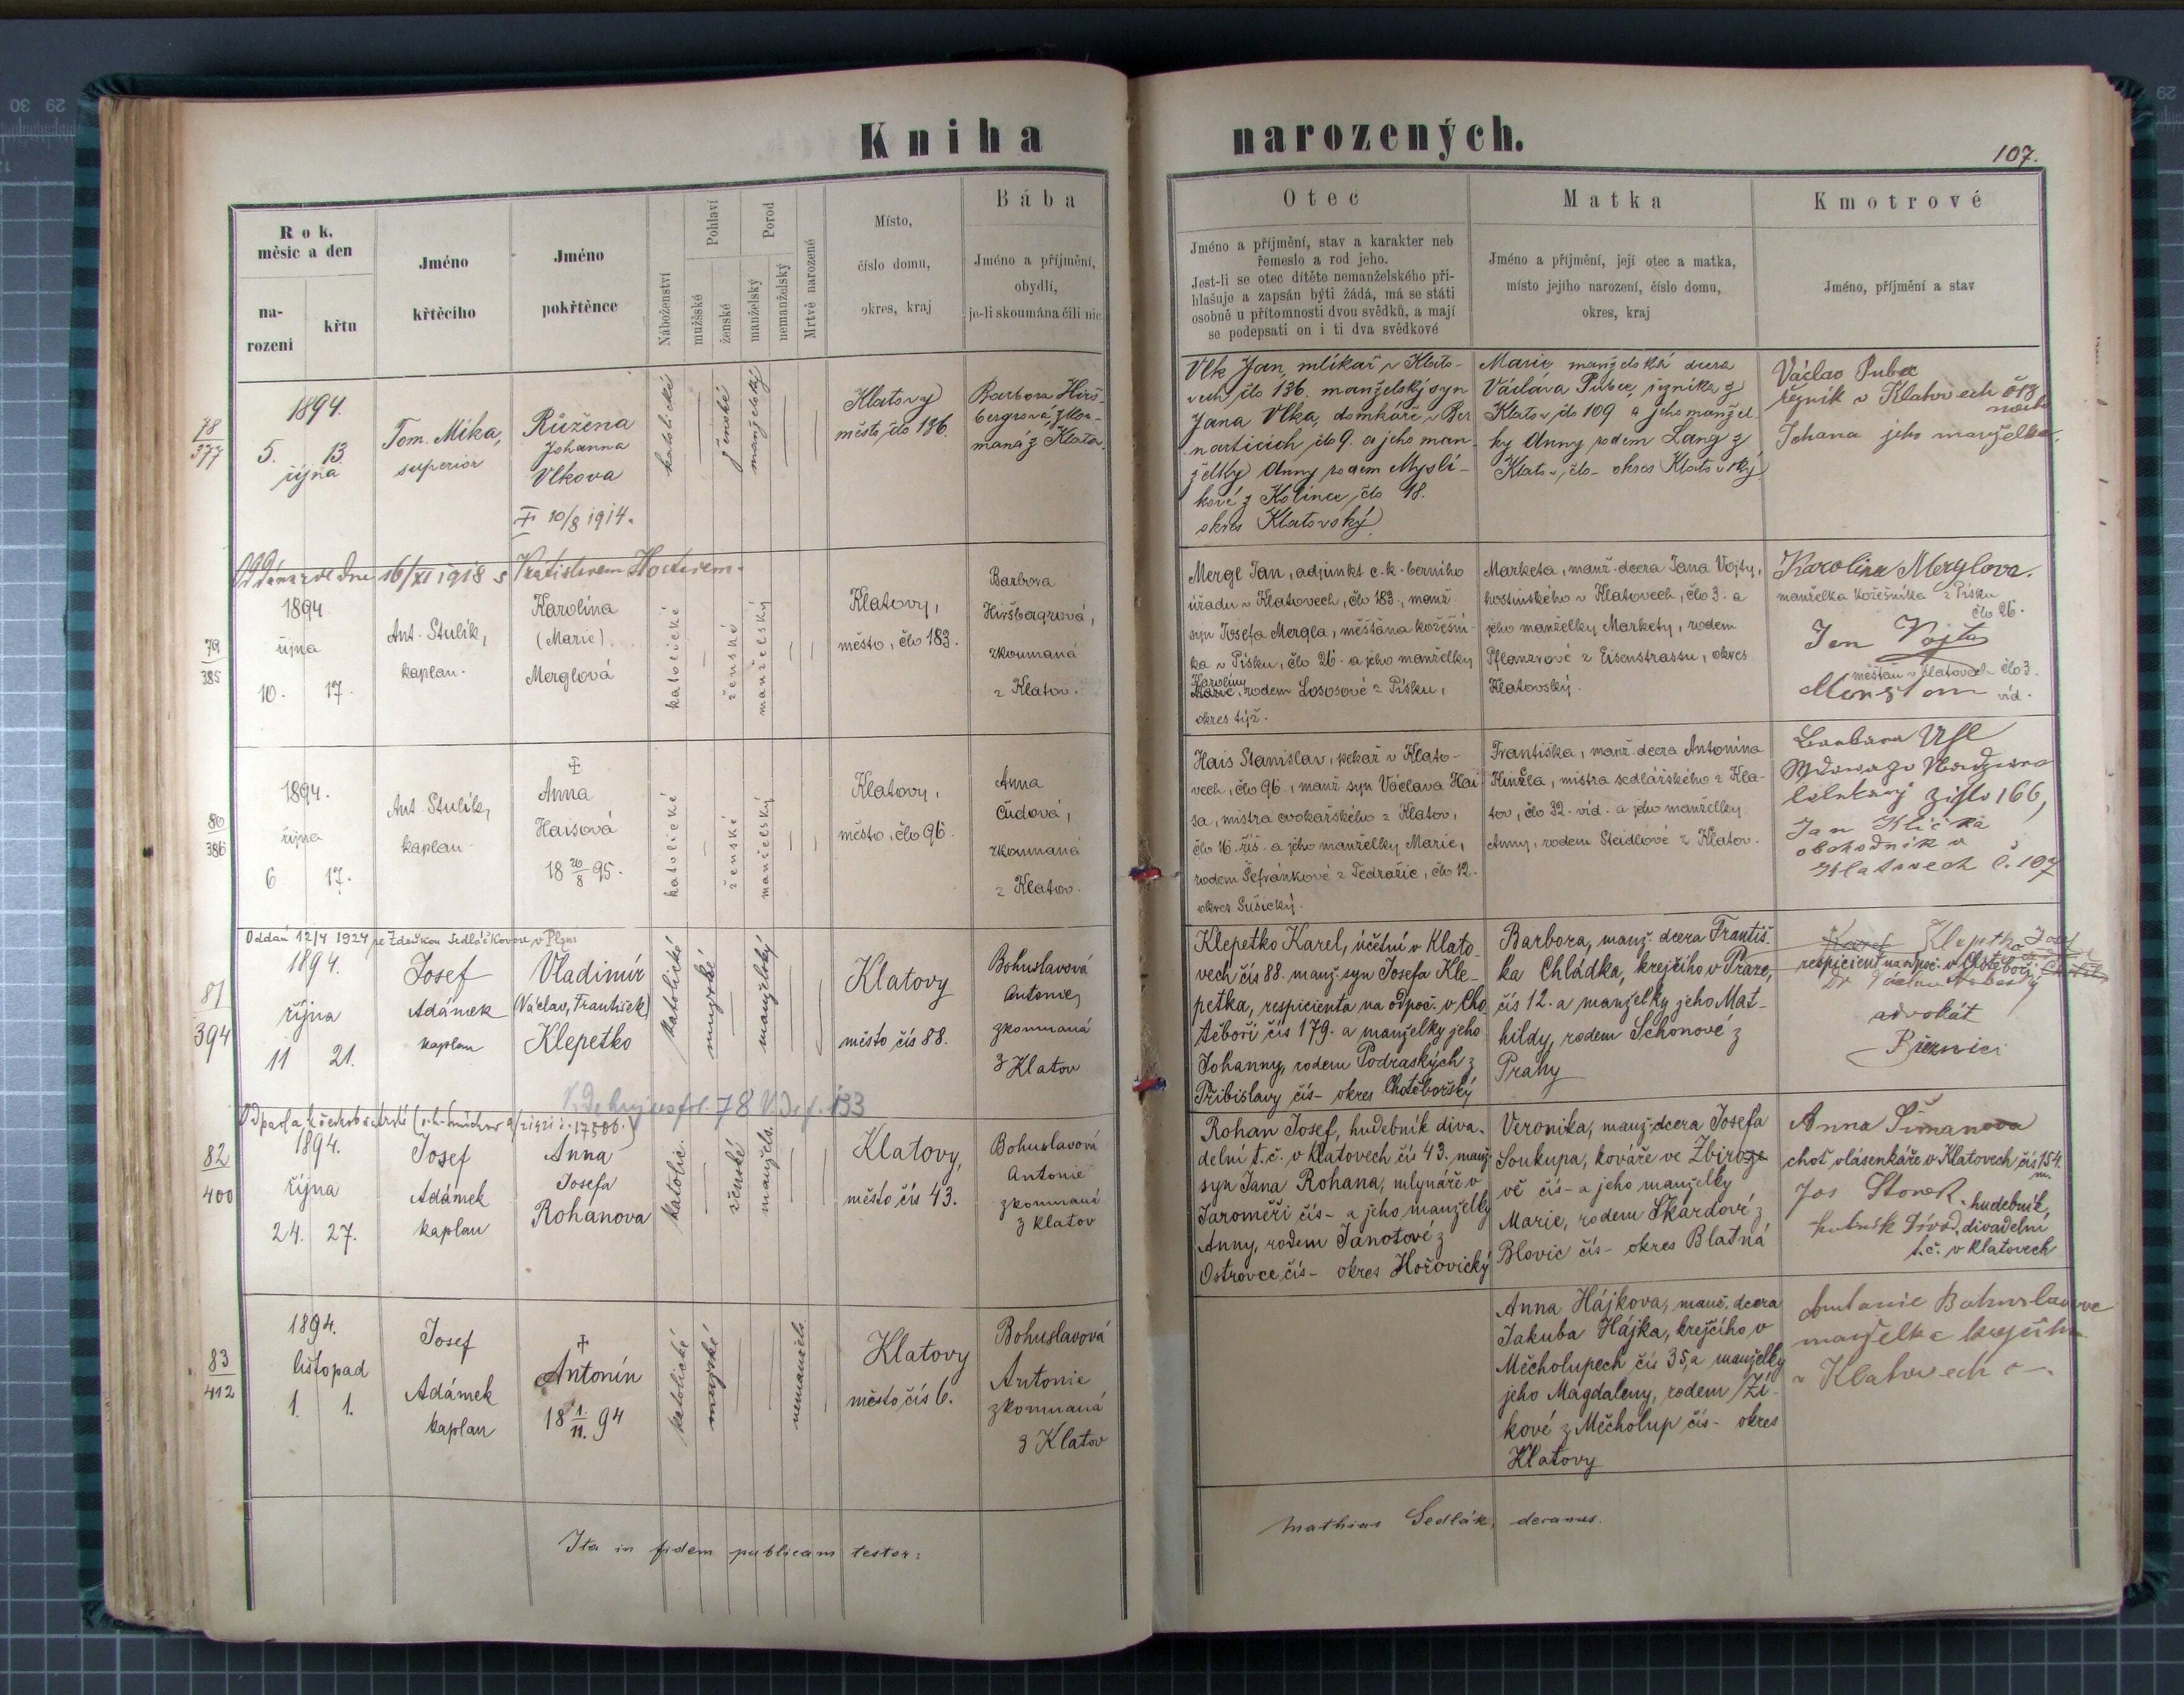 Kniha narozených.
107.
Rok, měsíc a den
na-
rození
křtu
Jméno
křtěcího
Jméno
pokřtěnce
Náboženství
Pohlaví
mužšské
ženské
Porod
manželský
nemanželský
Mrtvě narozené
Místo,
číslo domu,
okres, kraj
Bába
Jméno a příjmění,
obydlí,
je-li skoumána čili nic
Otec
Jméno a příjmění, stav a karakter neb
řemeslo a rod jeho.
Jest-li se otec dítěte nemanželského při-
hlašuje a zapsán býti žádá, má se státi
osobně u přítomnosti dvou svědků, a mají
se podepsati on i ti dva svědkové
Matka
Jméno a příjmění, její otec a matka,
místo jejího narození, číslo domu,
okres, kraj
Kmotrové
Jméno, příjmění a stav
78
377
1894.
5. 13.
října
Tom. Mika,
superior
Růžena
Johanna
Vlkova
† 10/8 1914.
katolické
ženské
manželský
Klatovy
město, člo 136.
Barbora Hirš-
bergrová, zkou-
maná z Klatov.
Vlk Jan, mlíkař v Klato-
vech člo 136. manželský syn
Jana Vlka, domkáře v Ber
narticích člo 9. a jeho man-
želky Anny rodem Mysli-
kové z Kolince, člo 48.
okres Klatovský
Marie, manželská dcera
Václava Pubec, řezníka z
Klatov, člo 109 a jeho manžel
ky Anny rodem Lang z
Klatov, člo - okres Klatovský
Václav Pubec
řezník v Klatovech
Johana jeho manželka.
Oddána zde dne 16/XI 1918 s
79
385
1894
října
10. 17.
Ant. Stulík,
kaplan.
Karolína
(Marie)
Merglová
katolické
ženské
manželský
Klatovy,
město, člo 183.
Barbora
Hiršbergrová,
zkoumaná
z Klatov.
Mergl Jan, adjunkt c.k. berního
úřadu v Klatovech, člo 183., manž.
syn Josefa Mergla, měšťana kožešní-
ka v Písku, člo 26. a jeho manželky
Karoliny
Marie, rodem Lososové z Písku,
okres týž.
Marketa, manž. dcera Jana Vojty,
hostinského v Klatovech, člo 3. a
jeho manželky Markety, rodem
Pflanzrové z Eisenstrassu, okres
Klatovský.
Karolina Merglova.
manželka kožešníka z Písku
člo 26.
Jan Vojta
měšťan v Klatovech člo 3.
víd.
80
386
1894.
října
6 17.
Ant Stulík,
kaplan
†
Anna
Haisová
18 20/8 95.
katolické
ženské
manželský
Klatovy,
město, člo 96.
Anna
Čudová,
zkoumaná
z Klatov.
Hais Stanislav, pekař v Klato-
vech, člo 96., manž syn Václava Hai
sa, mistra cvokařského z Klatov,
člo 16. říš. a jeho manželky Marie,
rodem Šefránkové z Tedražic, člo 12.
okres Sušický.
Františka, manž. dcera Antonína
Kinžla, mistra sedlářského z Kla-
tov, člo 32. víd. a jeho manželky
Anny, rodem Steidlové z Klatov.
Barbara
166,
Jan Klička
obchodník v
Klatovech č. 107
Oddán 12/4 1924 se Zdeňkou Sedláčkovou v Plzni
81
394
1894.
října
11 21.
Josef
Adámek
kaplan
Vladimír
(Václav, František)
Klepetko
katolické
mužské
manželský
Klatovy
město čís 88.
Bohuslavová
Antonie,
zkoumaná
z Klatov
Klepetko Karel, účetní v Klato-
vech čís 88. manž. syn Josefa Kle-
petka, respicienta na odpoč. v Cho
těboři čís 179. a manželky jeho
Johanny, rodem Podraských z
Přibislavy čís - okres Chotěbořský
Barbora, manž. dcera Františ-
ka Chládka, krejčího v Praze,
čís 12. a manželky jeho Mat-
hildy, rodem Schonové z
Prahy
Karel Klepetko Josef
respicient na odpoč. v Chotěboři
Dr Václav
advokát
Březnici
78 133
82
400
1894.
října
24. 27.
Josef
Adámek
kaplan
Anna
Josefa
Rohanova
katolic.
ženské
manžels.
Klatovy,
město čís 43.
Bohuslavová
Antonie
zkoumaná
z Klatov
Rohan Josef, hudebník diva-
delní t.č. v Klatovech čís 43. manž.
syn Jana Rohana, mlynáře v
Jaroměři čís - a jeho manželky
Anny, rodem Janotové z
Ostrovce čís - okres Hořovický
Veronika, manž. dcera Josefa
Soukupa, kováře ve Zbiroze
vě čís - a jeho manželky
Marie, rodem Škardové z
Blovic čís - okres Blatná
Anna Šimanova
choť vlásenkáře v Klatovech čís 154.
m.
Jos
hudebník,
divadelní
t.č. v Klatovech
83
412
1894.
listopad
1. 1.
Josef
Adámek
kaplan
†
Antonín
18 1./11. 94
katolické
mužské
nemanžels.
Klatovy
město čís 6.
Bohuslavová
Antonie
zkoumaná
z Klatov
Anna Hájkova, manž. dcera
Jakuba Hájka, krejčího v
Měcholupech čís 35, a manželky
jeho Magdaleny, rodem Zí-
kové z Měcholup čís - okres
Klatovy
Antonie Bohuslavova
manželka krejčího
v Klatovech č -.
Ita in fidem publicam testor:
Mathias Sedlák, decanus.